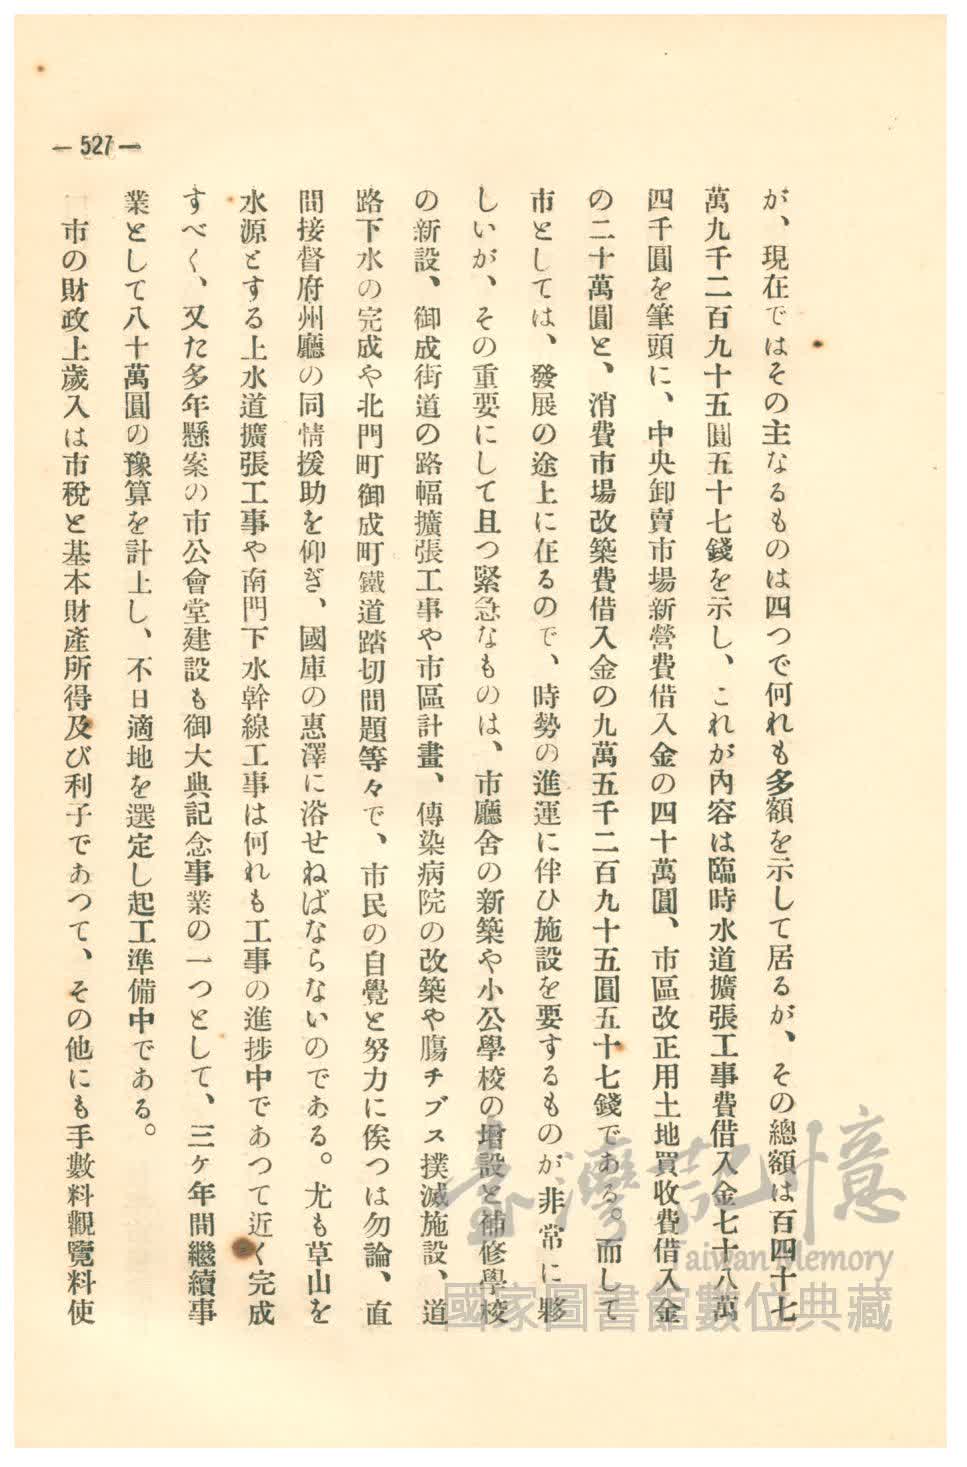 — 527 —
が、現在ではその主なるものは四つで何れも多額を示して居るが、その總額は百四十七
萬九千二百九十五圓五十七錢を示し、これが內容は臨時水道擴張工事費借入金七十八萬
四千圓を筆頭に、中央卸賣市場新營費借入金の四十萬圓、市區改正用土地買收費借入金
の二十萬圓と、消費市場改築費借入金の九萬五千二百九十五圓五十七錢である。而して
市としては、發展の途上に在るので、時勢の進運に伴ひ施設を要するものが非常に夥
しいが、その重要にして且つ緊急なものは、市廳舍の新築や小公學校の增設と補修學校
の新設、御成街道の路幅擴張工事や市區計畫、傳染病院の改築や膓チブス撲滅施設、道
路下水の完成や北門町御成町鐵道踏切問題等々で、市民の自覺と努力に俟つは勿論、直
間接督府州廳の同情援助を仰ぎ、國庫の惠澤に浴せねばならないのである。尤も草山を
水源とする上水道擴張工事や南門下水幹線工事は何れも工事の進捗中であつて近く完成
すべく、又た多年懸案の市公會堂建設も御大典記念事業の一つとして、三ケ年間繼續事
業として八十萬圓の豫算を計上し、不日適地を選定し起工準備中である。
市の財政上歲入は市稅と基本財產所得及び利子であつて、その他にも手數料觀覽料使
臺灣記憶
Taiwan Memory
國家圖書館數位典藏